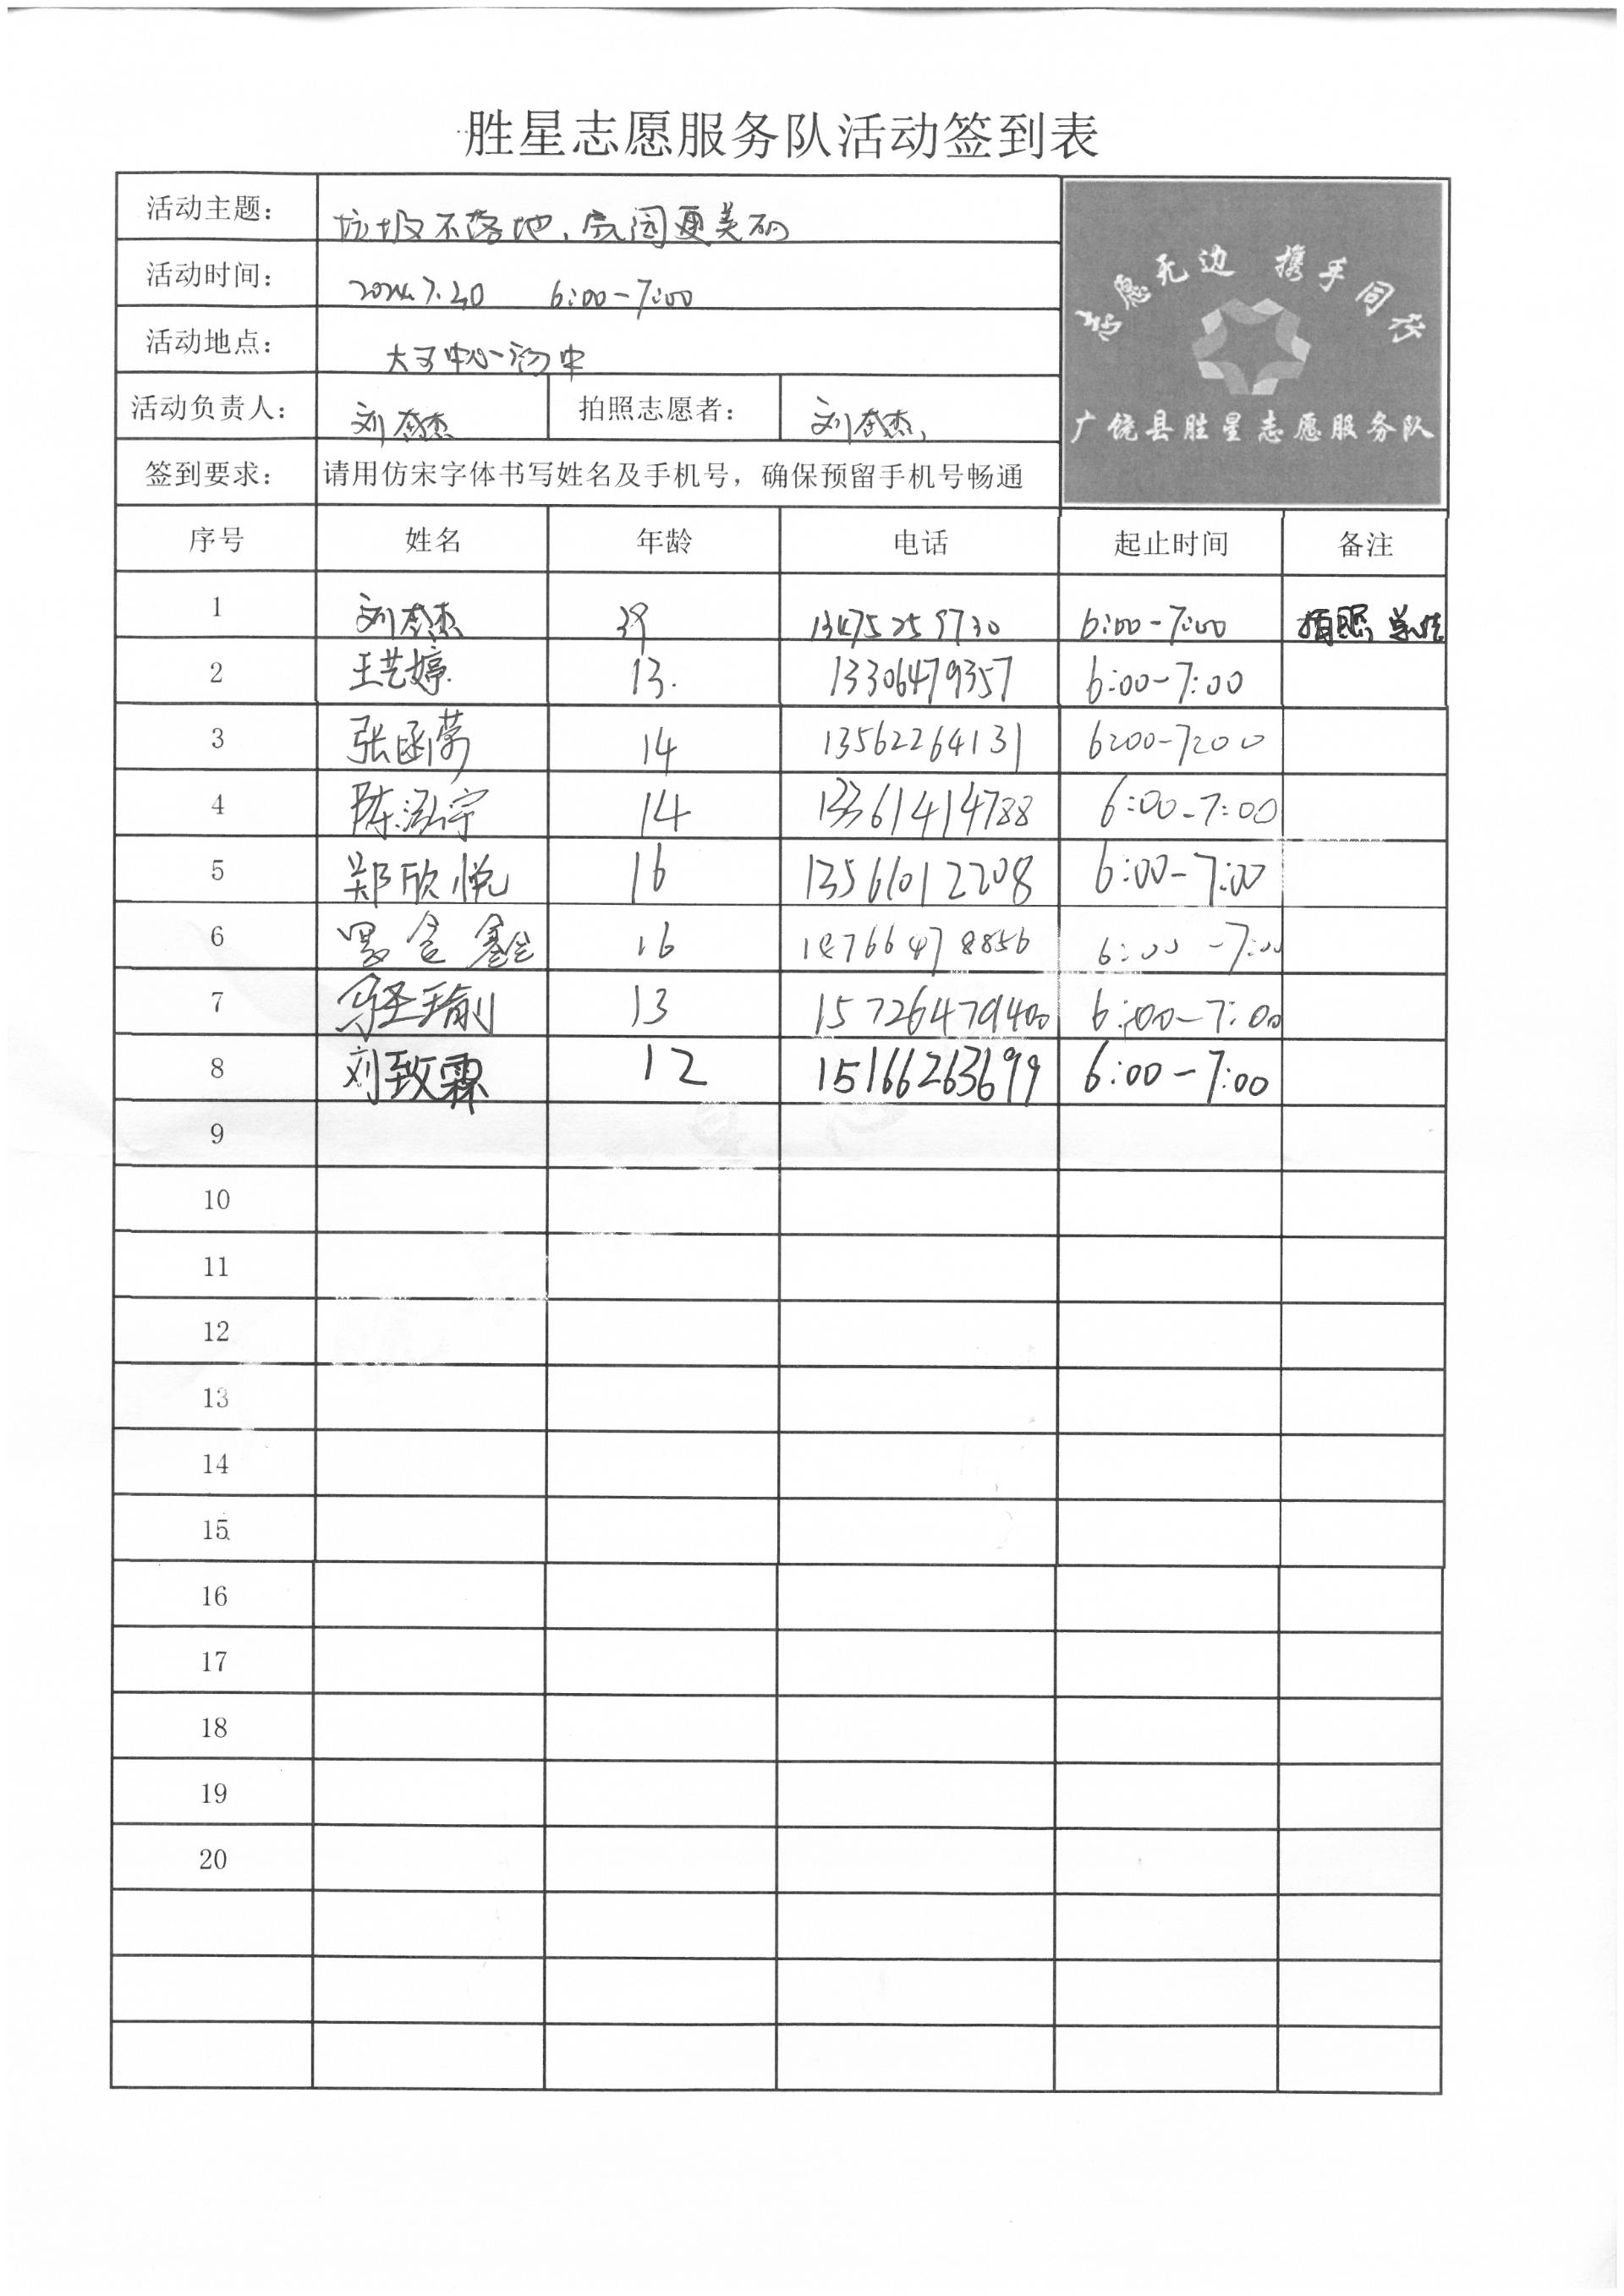 胜星志愿服务队活动签到表
活动主题： 垃圾不落地，家园更美丽
活动时间： 2024.7.20 6:00-7:00
活动地点：
活动负责人： 刘 杰 拍照志愿者： 刘 杰
签到要求： 请用仿宋字体书写姓名及手机号，确保预留手机号畅通
志愿无边 携手同行
广饶县胜星志愿服务队
序号 姓名 年龄 电话 起止时间 备注
1 刘 杰 39 13475259730 6:00-7:00 拍照
2 王艺婷 13. 13306479357 6:00-7:00
3 张函 14 13562264131 6:00-7:00
4 陈泓宇 14 13361414788 6:00-7:00
5 郑欣悦 16 13561012208 6:00-7:00
6 16 14766478856 6:00-7:00
7 瑜 13 15726479400 6:00-7:00
8 刘致霖 12 15166263699 6:00-7:00
9
10
11
12
13
14
15
16
17
18
19
20